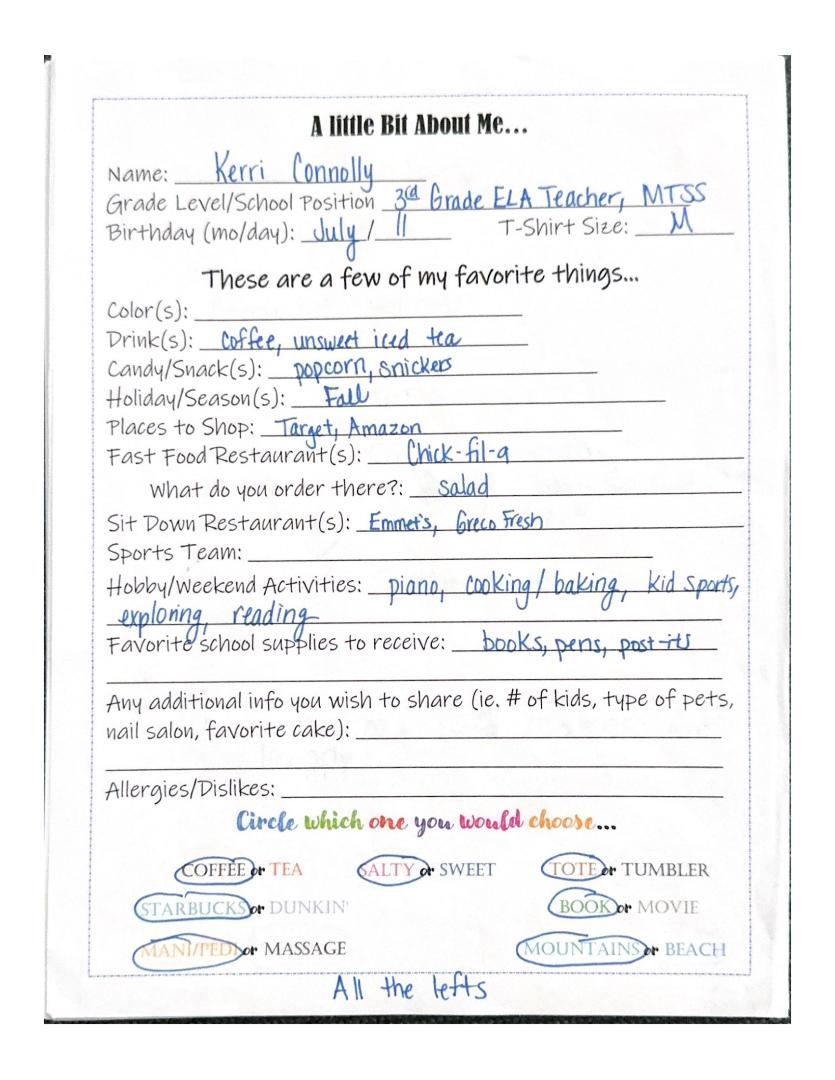 A little Bit About Me...
Name: Kerri Connolly
Grade Level/School Position 3rd Grade ELA Teacher, MTSS
Birthday (mo/day): July / 11 T-Shirt Size: M
These are a few of my favorite things...
Color(s):
Drink(s): coffee, unsweet iced tea
Candy/Snack(s): popcorn, snickers
Holiday/Season(s): Fall
Places to Shop: Target, Amazon
Fast Food Restaurant(s): Chick-fil-a
What do you order there?: salad
Sit Down Restaurant(s): Emmet's, Greco Fresh
Sports Team:
Hobby/Weekend Activities: piano, cooking/baking, kid sports,
exploring, reading
Favorite school supplies to receive: books, pens, post-its
Any additional info you wish to share (ie. # of kids, type of pets,
nail salon, favorite cake):
Allergies/Dislikes:
Circle which one you would choose...
COFFEE or TEA SALTY or SWEET TOTE or TUMBLER
STARBUCKS or DUNKIN' BOOK or MOVIE
MANI/PEDI or MASSAGE MOUNTAINS or BEACH
All the lefts